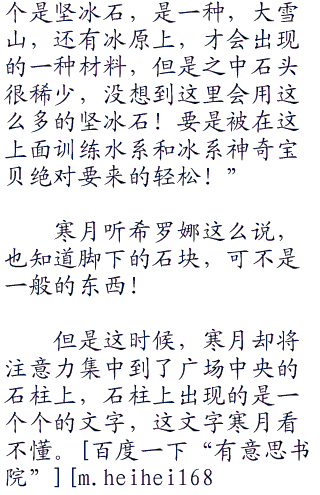 个是坚冰石，是一种，大雪
山，还有冰原上，才会出现
的一种材料，但是之中石头
很稀少，没想到这里会用这
么多的坚冰石！要是被在这
上面训练水系和冰系神奇宝
贝绝对要来的轻松！”
寒月听希罗娜这么说，
也知道脚下的石块，可不是
一般的东西！
但是这时候，寒月却将
注意力集中到了广场中央的
石柱上，石柱上出现的是一
个个的文字，这文字寒月看
不懂。[百度一下“有意思书
院”][m.heihei168